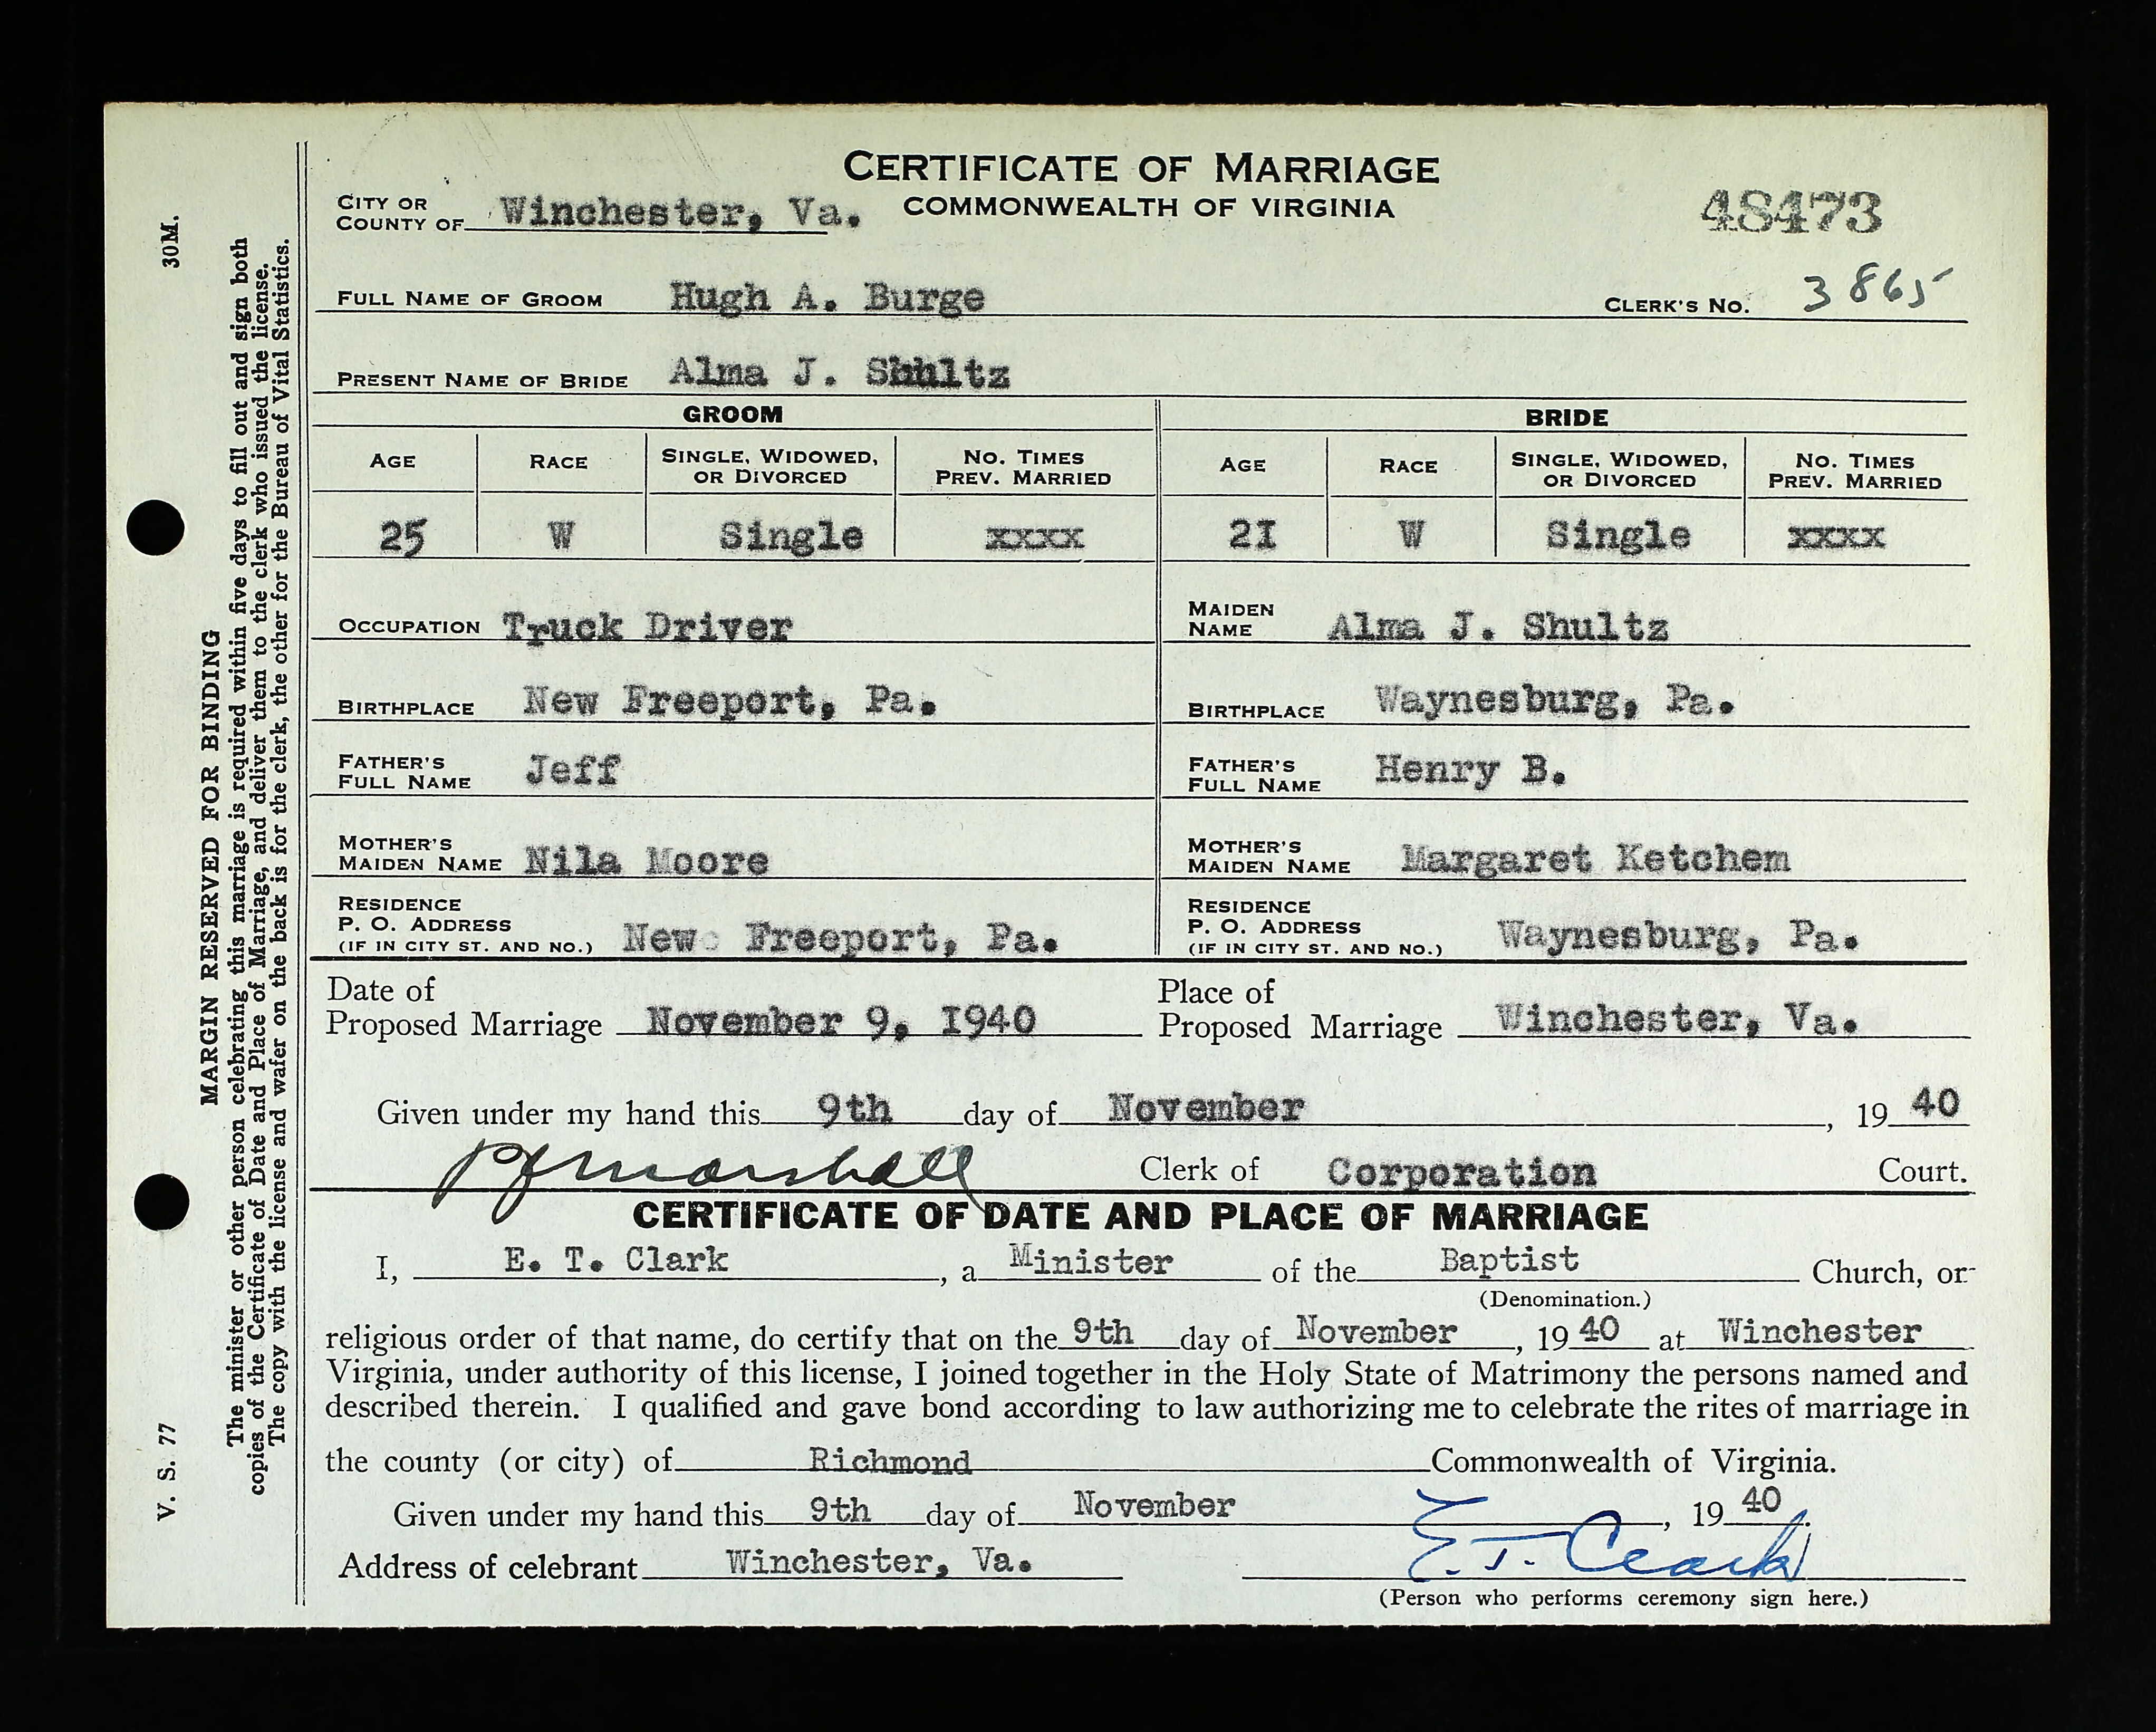 CERTIFICATE OF MARRIAGE
COMMONWEALTH OF VIRGINIA
CITY OR
COUNTY OF Winchester, Va.
48473
FULL NAME OF GROOM Hugh A. Burge
CLERK'S No. 3865
PRESENT NAME OF BRIDE Alma J. Shultz
GROOM
BRIDE
AGE RACE SINGLE, WIDOWED, OR DIVORCED NO. TIMES PREV. MARRIED
AGE RACE SINGLE, WIDOWED, OR DIVORCED NO. TIMES PREV. MARRIED
25 W Single xxxx
2I W Single xxxx
OCCUPATION Truck Driver
MAIDEN NAME Alma J. Shultz
BIRTHPLACE New Freeport, Pa.
BIRTHPLACE Waynesburg, Pa.
FATHER'S FULL NAME Jeff
FATHER'S FULL NAME Henry B.
MOTHER'S MAIDEN NAME Nila Moore
MOTHER'S MAIDEN NAME Margaret Ketchem
RESIDENCE
P. O. ADDRESS
(IF IN CITY ST. AND NO.) New Freeport, Pa.
RESIDENCE
P. O. ADDRESS
(IF IN CITY ST. AND NO.) Waynesburg, Pa.
Date of
Proposed Marriage November 9, I940
Place of
Proposed Marriage Winchester, Va.
Given under my hand this 9th day of November, 19 40
P J Marshall Clerk of Corporation Court.
CERTIFICATE OF DATE AND PLACE OF MARRIAGE
I, E. T. Clark, a Minister of the Baptist Church, or
(Denomination.)
religious order of that name, do certify that on the 9th day of November, 19 40 at Winchester
Virginia, under authority of this license, I joined together in the Holy State of Matrimony the persons named and
described therein. I qualified and gave bond according to law authorizing me to celebrate the rites of marriage in
the county (or city) of Richmond Commonwealth of Virginia.
Given under my hand this 9th day of November, 19 40.
Address of celebrant Winchester, Va.
E. T. Clark
(Person who performs ceremony sign here.)
V. S. 77
30M.
MARGIN RESERVED FOR BINDING
The minister or other person celebrating this marriage is required within five days to fill out and sign both
copies of the Certificate of Date and Place of Marriage, and deliver them to the clerk who issued the license.
The copy with the license and wafer on the back is for the clerk, the other for the Bureau of Vital Statistics.